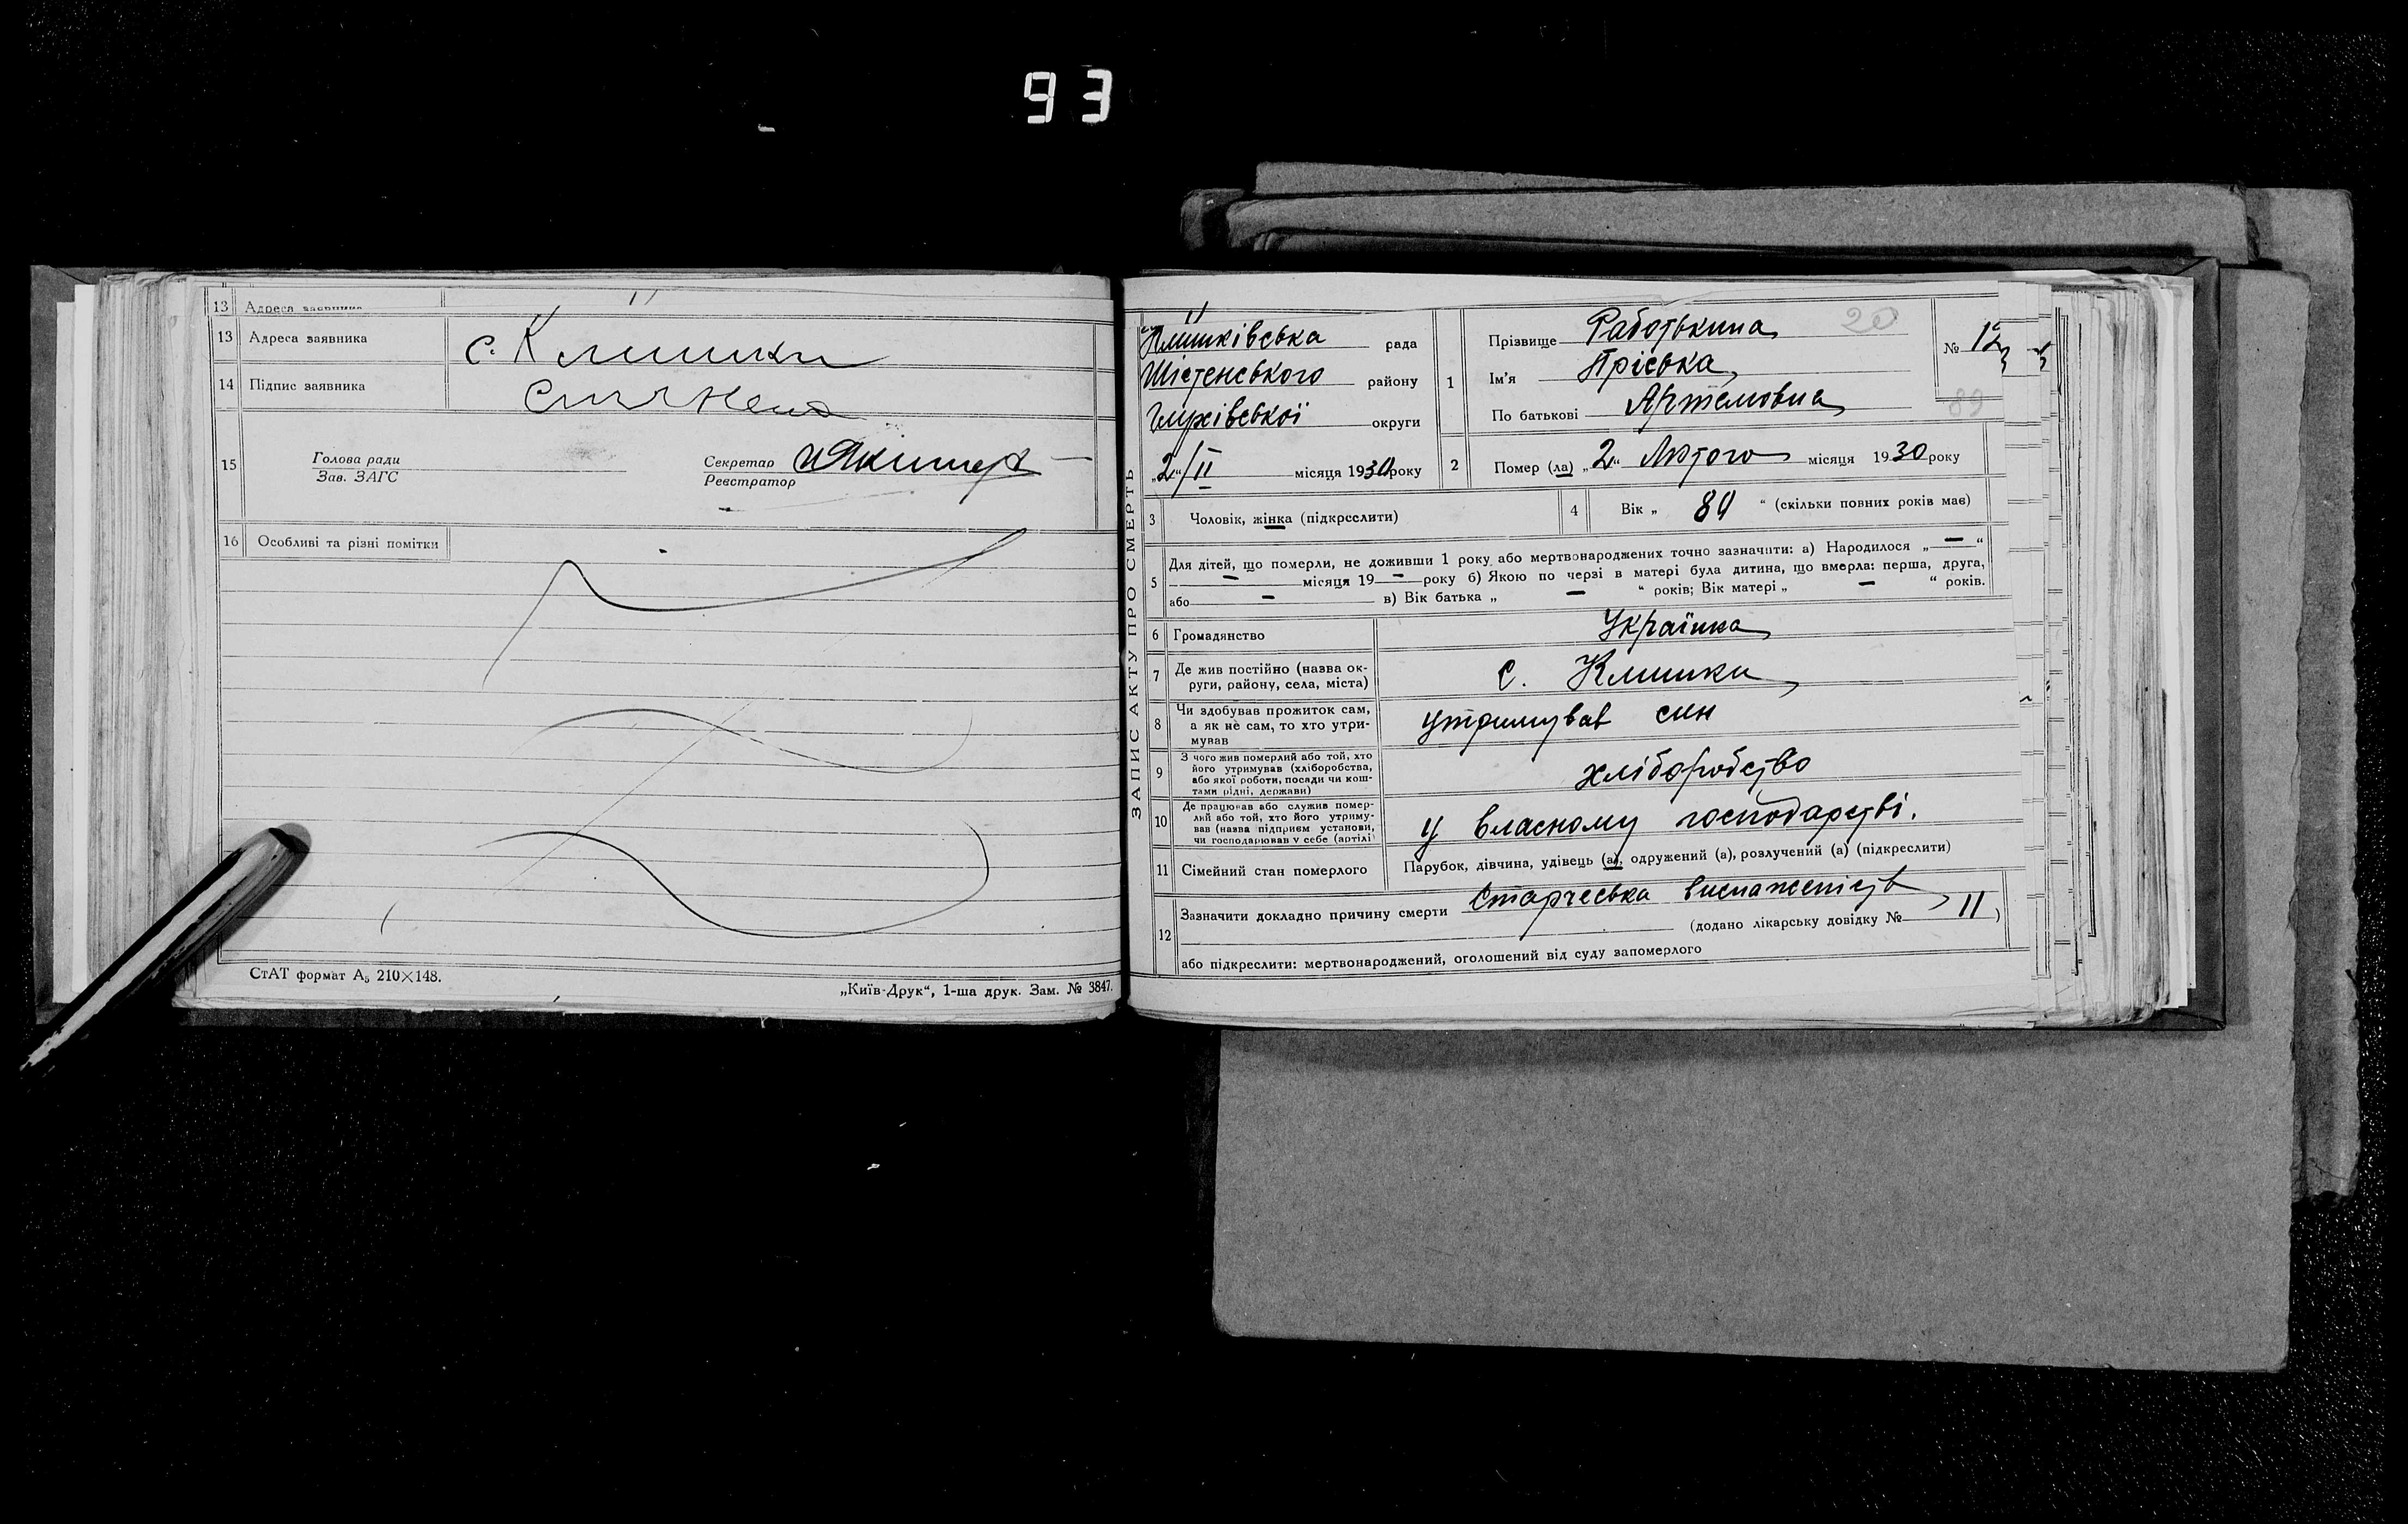 93
13 Адреса заявника
13 Адреса заявника с. Клишки
14 Підпис заявника
15 Голова ради
Зав. ЗАГС
Секретар
Реєстратор
16 Особливі та різні помітки
СтАТ формат А5 210×148.
„Київ-Друк“, 1-ша друк. Зам. № 3847.
ЗАПИС АКТУ ПРО СМЕРТЬ
Клишківська рада
Шістенського району
Глухівської округи
„2“/II місяця 1930 року
1 Прізвище Работькина 20
Ім'я Пріська
По батькові Артемовна
№ 12
89
2 Помер (ла) „2“ Лютого місяця 1930 року
3 Чоловік, жінка (підкреслити)
4 Вік „ 84 “ (скільки повних років має)
5 Для дітей, що померли, не доживши 1 року або мертвонароджених точно зазначити: а) Народилося „—“
— місяця 19 — року б) Якою по черзі в матері була дитина, що вмерла: перша, друга,
або — в) Вік батька „ — “ років; Вік матері „ — “ років.
6 Громадянство Українка
7 Де жив постійно (назва ок-
руги, району, села, міста) с. Клишки
8 Чи здобував прожиток сам,
а як не сам, то хто утри-
мував утримував син
9 З чого жив померлий або той, хто
його утримував (хліборобства,
або якої роботи, посади чи кош-
тами рідні, держави) хліборобство
10 Де працював або служив помер-
лий або той, хто його утриму-
вав (назва підприєм установи,
чи господарював у себе (артілі) у власному господарстві.
11 Сімейний стан померлого Парубок, дівчина, удівець (а), одружений (а), розлучений (а) (підкреслити)
12 Зазначити докладно причину смерти Старческа виснаженість
(додано лікарську довідку № 11)
або підкреслити: мертвонароджений, оголошений від суду запомерлого